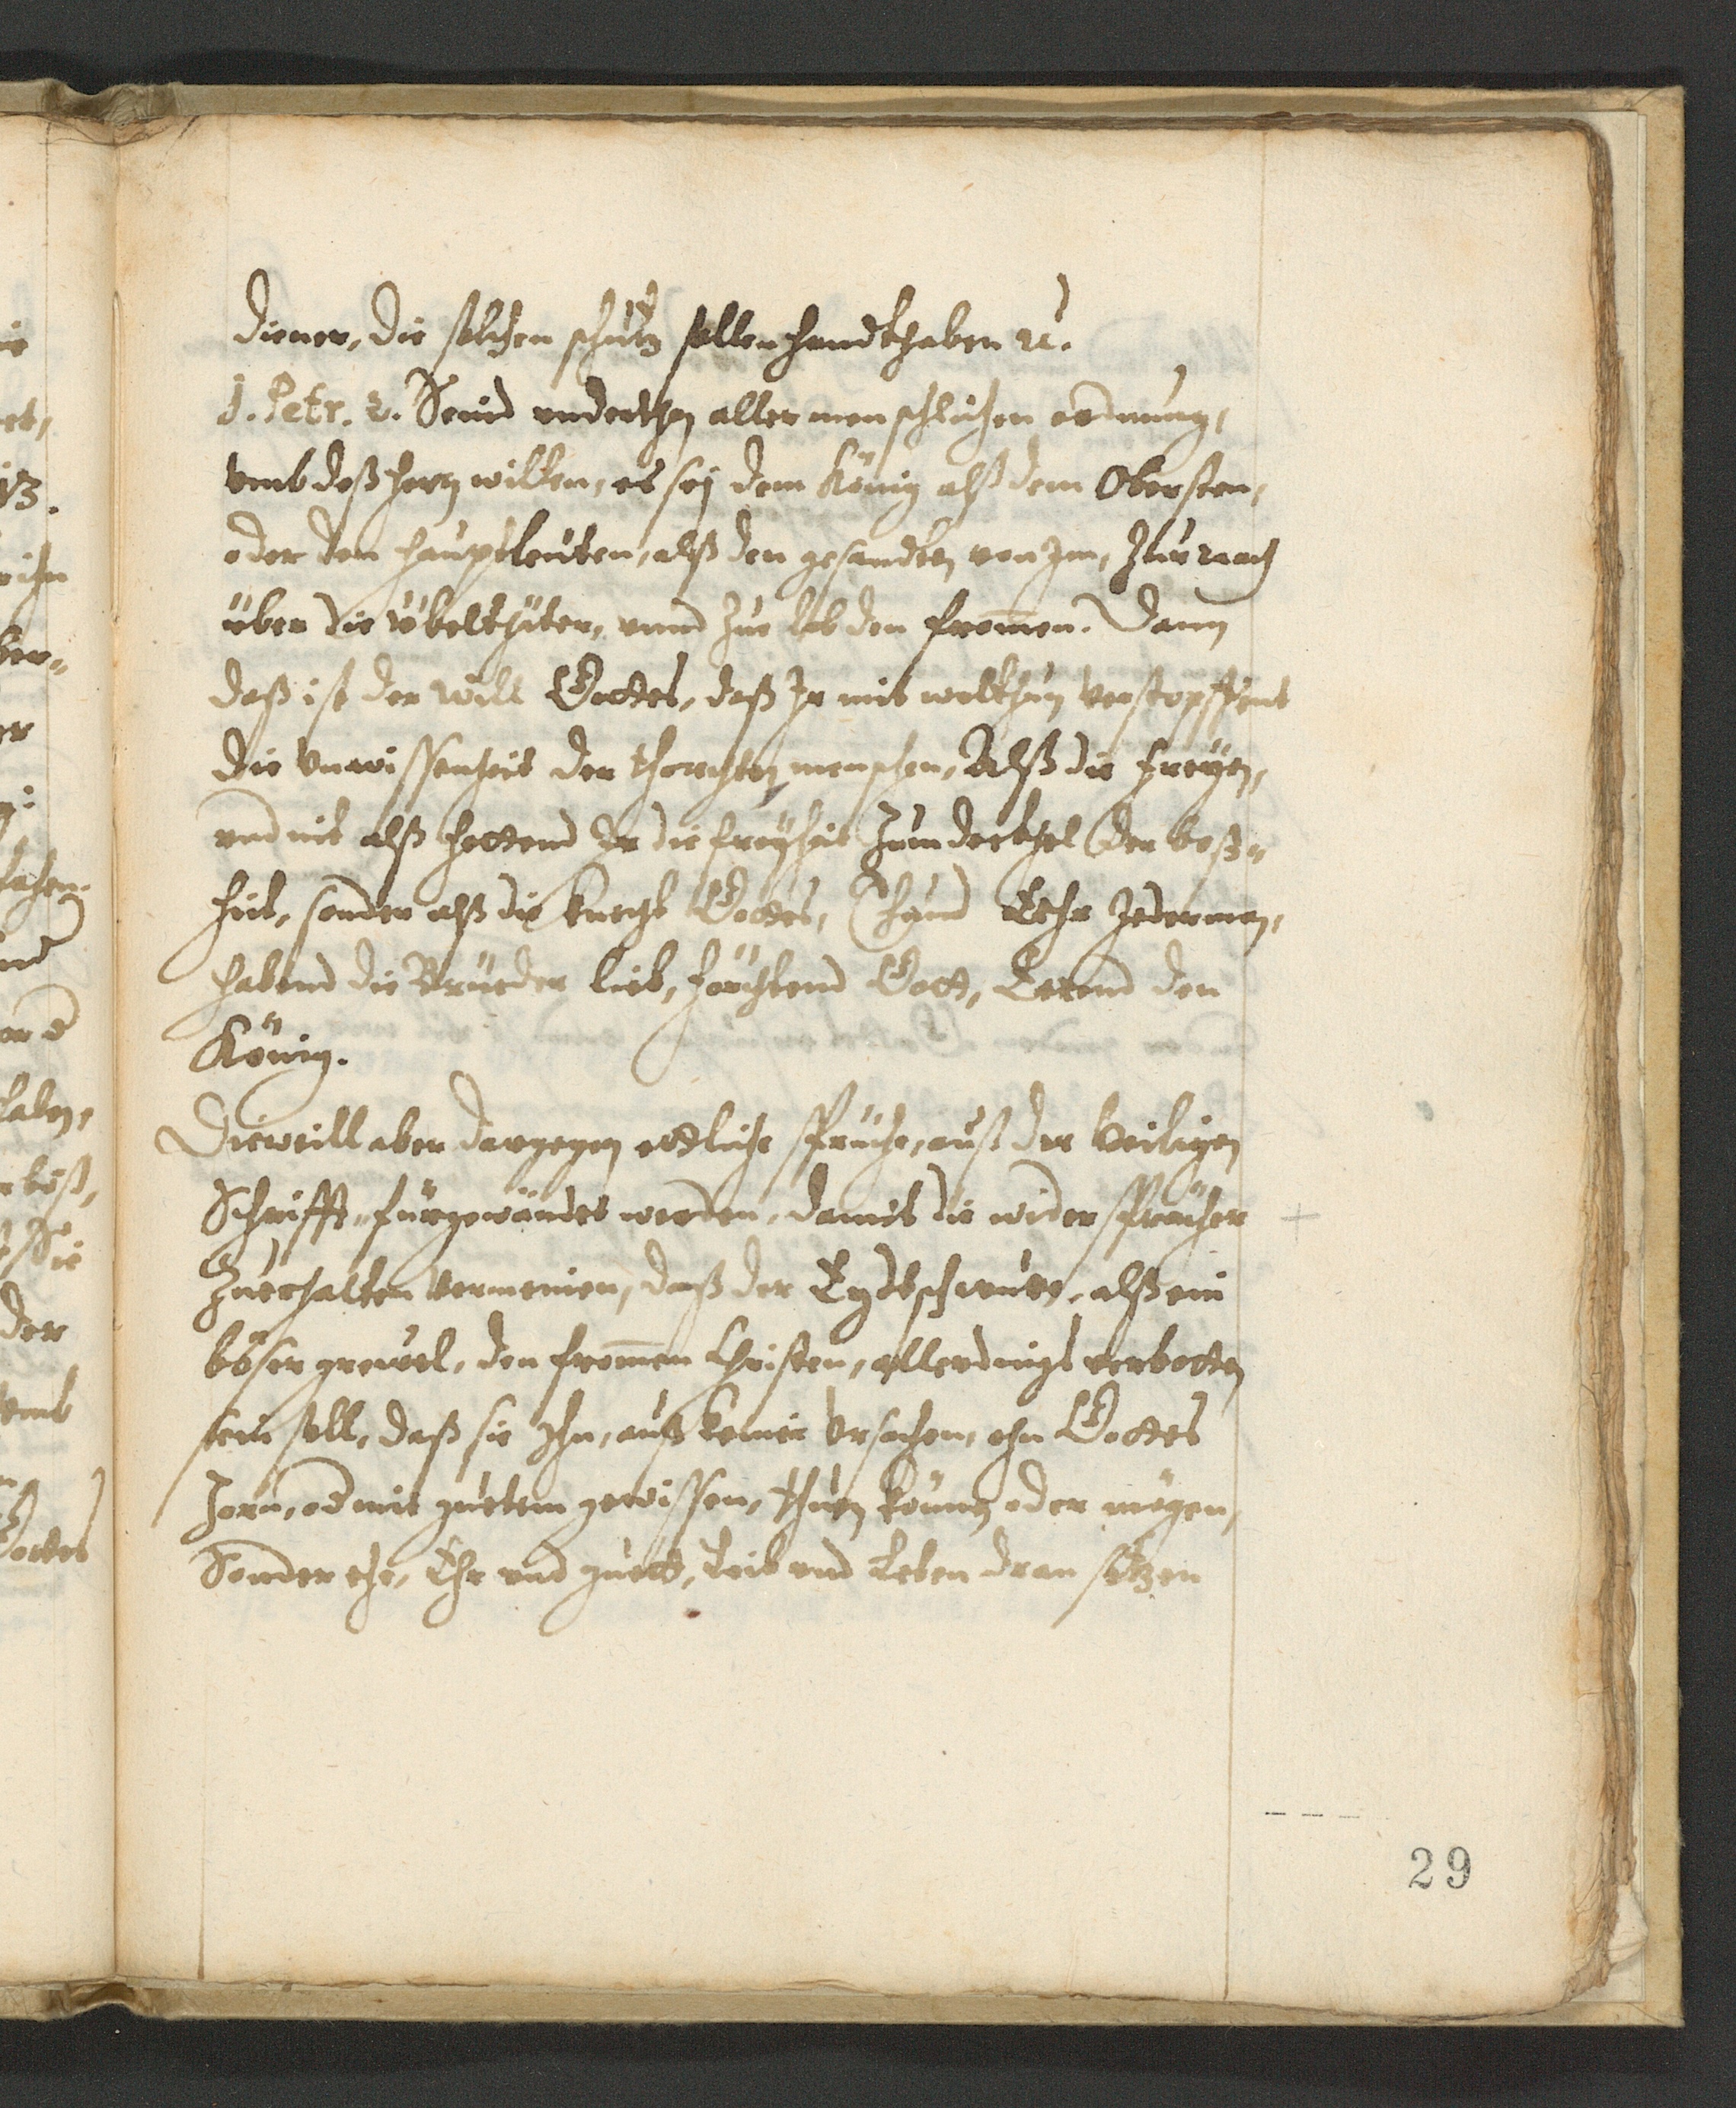 diener, die solchen schutz sollen handthaben ꝛc.
1. Petr. 2. Seind underthan aller menschlichen ordnung,
umb deß herrn willen, es sej dem König alß dem Obersten,
oder den hauptleuten, alß den gesandten von Jm, Zur rach
über die übelthäter, unnd Zue lob den from̅en. Dann
daß ist der will Gottes, daß Jr mit wolthun verstopffent
die unwissenheit der thorechten menschen, Alß die freyen,
und nit alß hettend Jr die freyheit Zum deckhel der boß-
heit, sonder alß die knecht Gottes, Thuend Eehr Jederman,
habend die Brüeder lieb, förchtend Gott, Eerend den
König.
Dieweill aber dargegen ettliche sprüche, auß der heiligen
Schrifft, fürgewändet werden, damit die widersprächer
Zuerhalten vermeinen, daß der Eydtschwure, alß ein
böser grewel, den from̅en Christen, allerdings verbotten
sein soll, daß sie Jhn, auß keiner ursachen, ohn Gottes
Zorn, od mit guetem gewissen, thuen können oder mögen,
Sonder ehe, Ehr und guett, Leib und Leben dran setzen
29